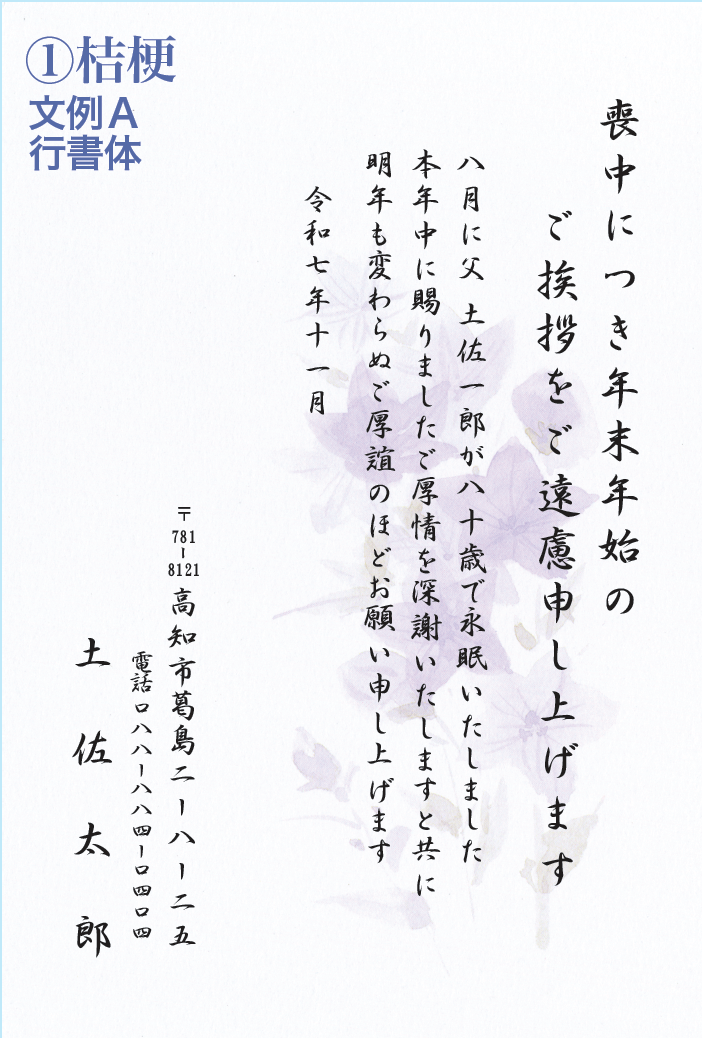 ①桔梗
文例A
行書体
喪中につき年末年始の
ご挨拶をご遠慮申し上げます
八月に父 土佐一郎が八十歳で永眠いたしました
本年中に賜りましたご厚情を深謝いたしますと共に
明年も変わらぬご厚誼のほどお願い申し上げます
令和七年十一月
〒781-8121 高知市葛島二ー八ー二五
電話 〇八八ー八八四ー〇四〇四
土佐太郎